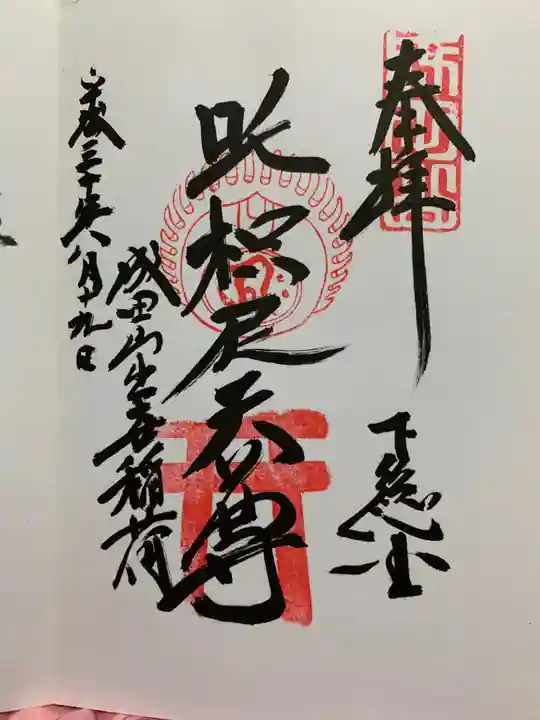 奉拝
下総国
吒枳尼天尊
成田山出世稲荷
平成三十年八月十九日